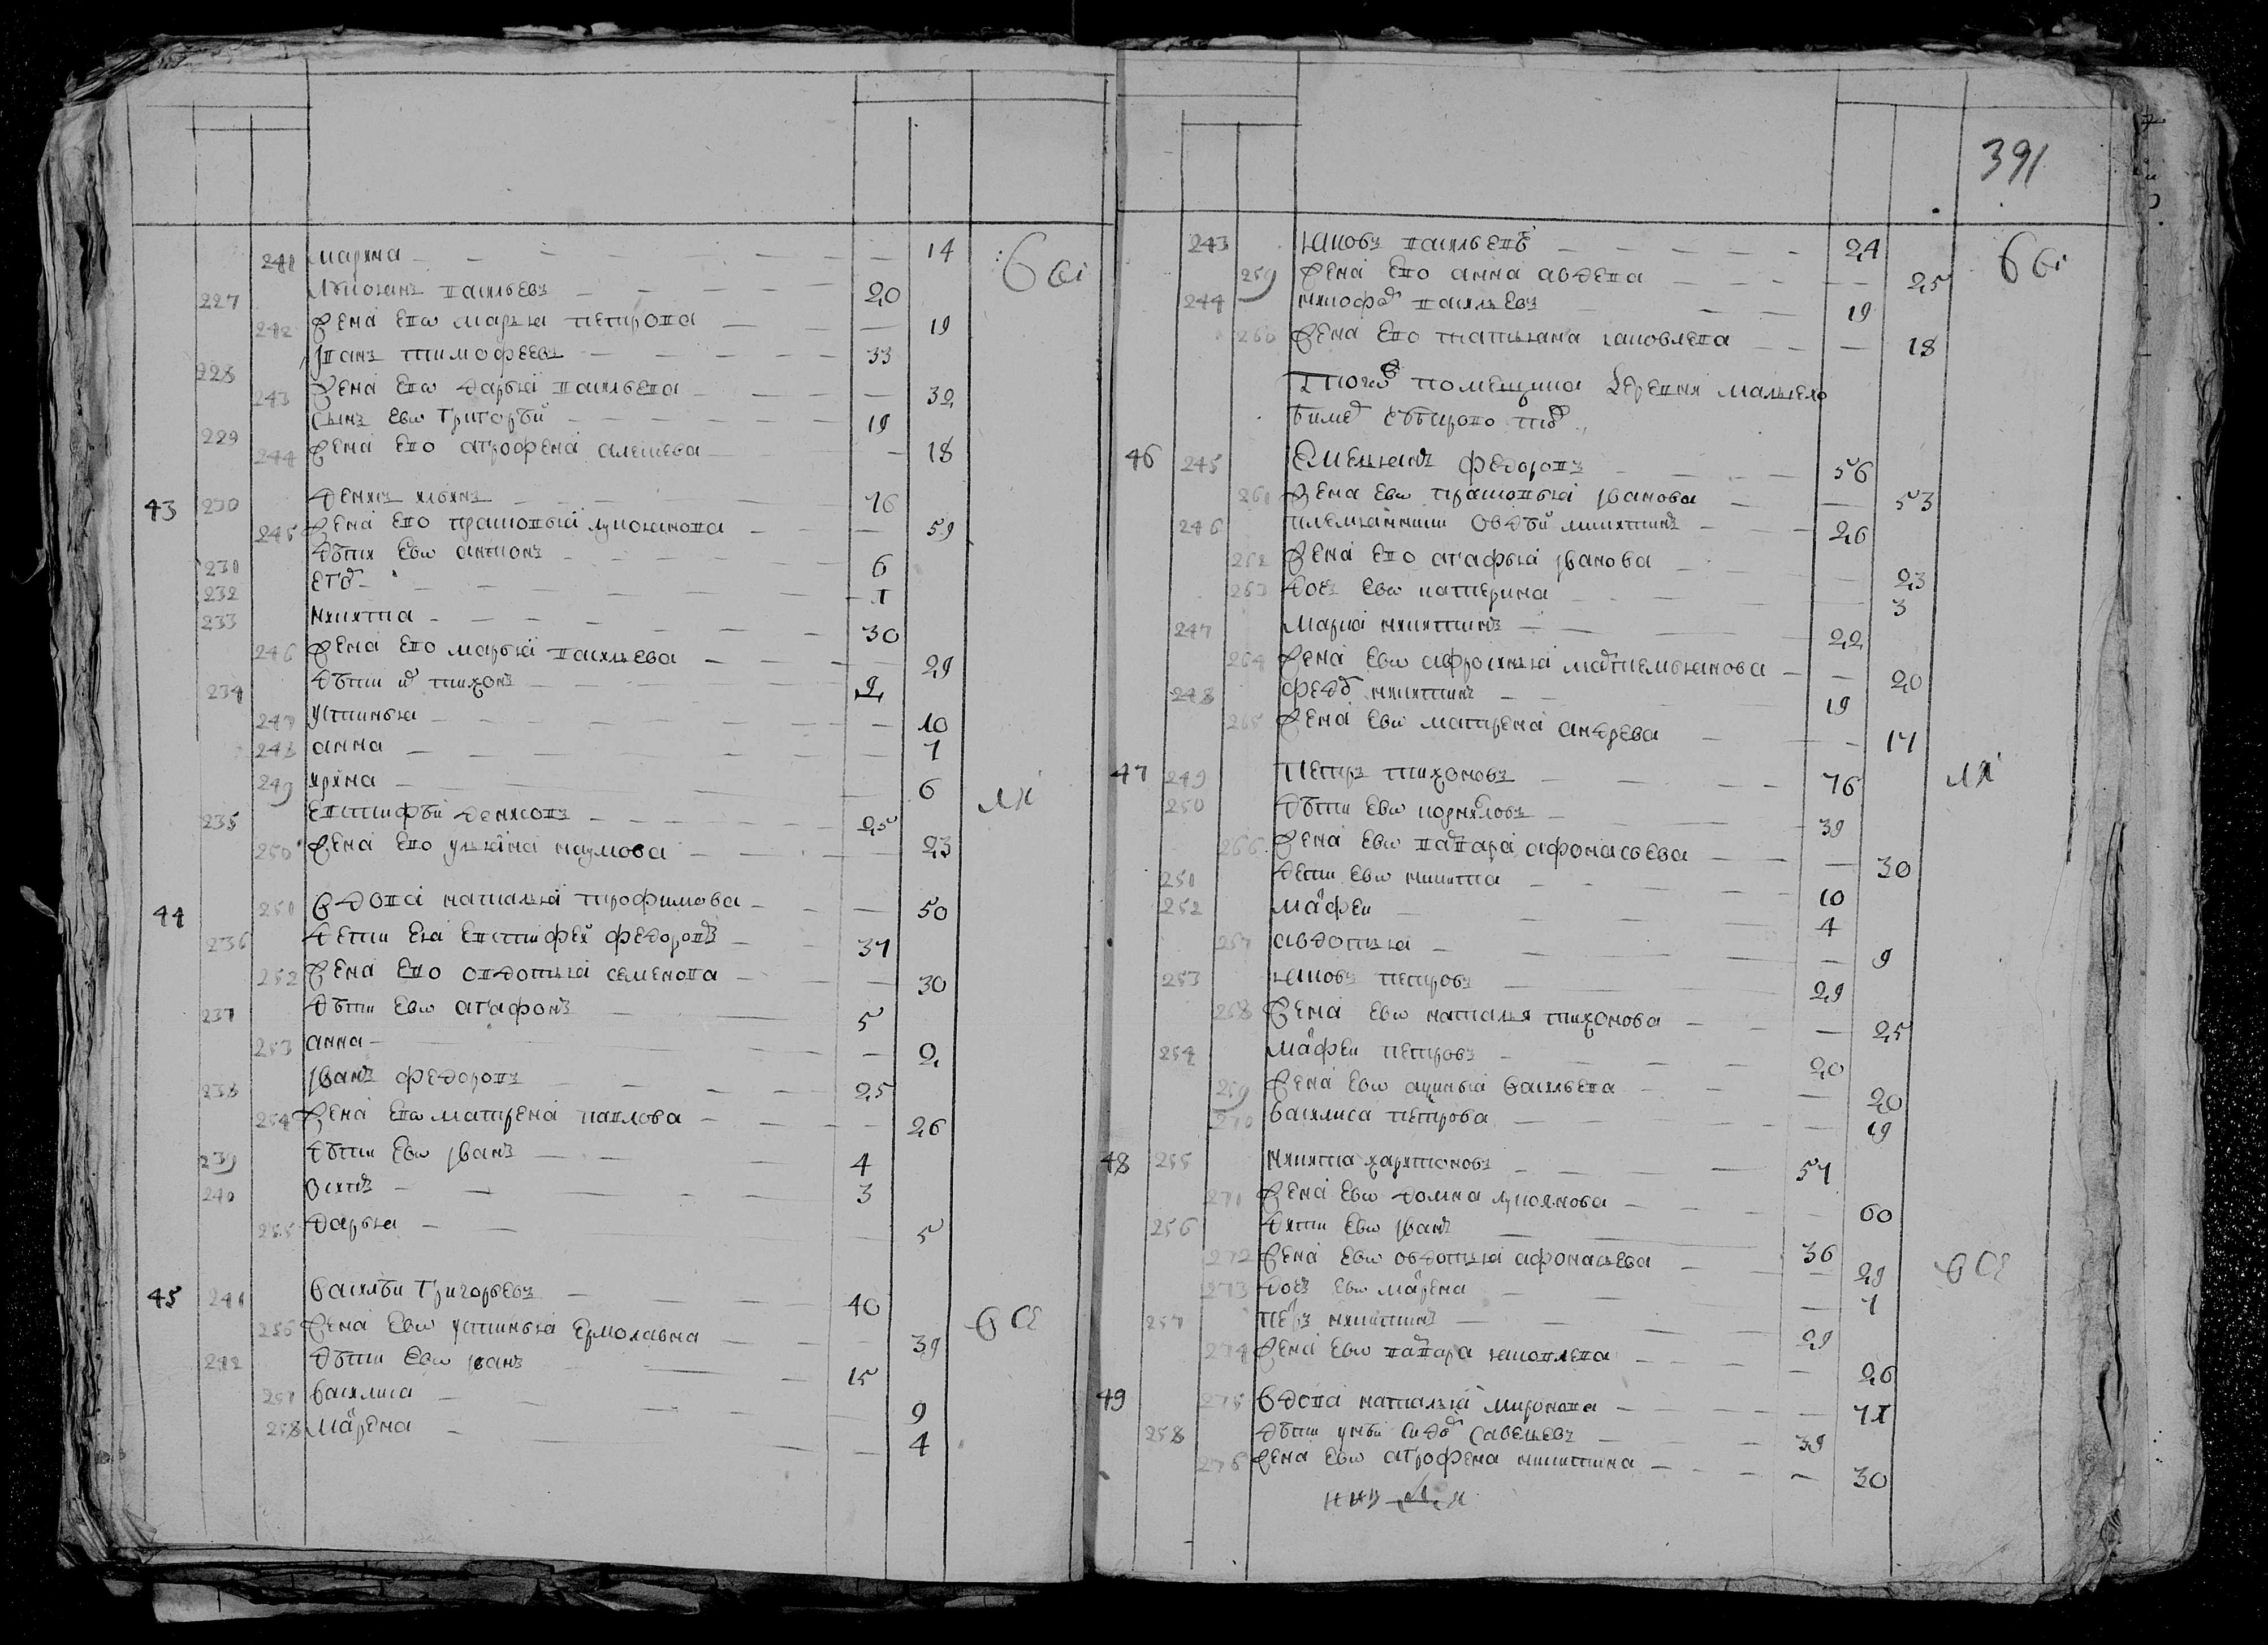 241 марина — 14
227 Лукоянъ васильевъ — 20
242 жена ево марья петрова — 19
228 иванъ тимофеевъ — 33
243 жена ево дарья васильева — 32
229 сынъ ево григорей — 19
244 жена ево аграфена алексева — 18
43 230 Денис — 76
245 жена ево прасковья лукоянова — 59
231 Дети ево антонъ — 6
232 — 1
233 никита — 30
246 жена ево марья васильева — 29
234 дети их тихонъ — 9
247 устинья — 10
248 анна — 7
249 ирина — 6
235 евстифей денисовъ — 25
250 жена ево ульяна наумова — 23
44 251 вдова наталья трофимова — 50
236 дети ея евстифей федоровъ — 37
252 жена ево овдотья семенова — 30
237 дети ево агафонъ — 5
253 анна — 2
238 иванъ федоровъ — 25
254 жена ево матрена павлова — 26
239 дети ево иванъ — 4
240 — 3
255 дарья — 5
45 241 василей григорьевъ — 40
256 жена ево устинья ермолавна — 39
242 дети ево иванъ — 15
257 василиса — 9
258 марена — 4
391
243 яковъ васильевъ — 24
259 жена ево анна авдева — 25
244 никофоръ васильевъ — 19
260 жена ево татьяна яковлева — 18
помещика деревня
46 245 Емельянъ федоровъ — 56
261 жена ево прасковья иванова — 53
246 племянники овдей никитинъ — 26
262 жена ево агафья иванова — 23
263 дочь ево катерина — 3
247 марка никитинъ — 22
264 жена ево афросинья — 20
248 федоръ никитинъ — 19
265 жена ево матрена андрева — 17
47 249 Петръ тихоновъ — 76
250 дети ево корниловъ — 39
266 жена ево варвара афонасьева — 30
251 дети ево никита — 10
252 марфеи — 4
267 авдотья — 9
253 яковъ петровъ — 29
268 жена ево наталья тихонова — 25
254 марфеи петровъ — 20
269 жена ево васильева — 20
270 василиса петрова — 19
48 255 никита харитоновъ — 57
271 жена ево домна лукоянова — 60
256 дети ево иванъ — 36
272 жена ево овдотья афонасьева — 29
273 дочь ево марена — 7
257 петръ никитинъ — 29
274 жена ево варвара яковлева — 26
49 275 вдова наталья миронова — 71
258 дети савельевъ — 39
276 жена ево аграфена никитина — 30